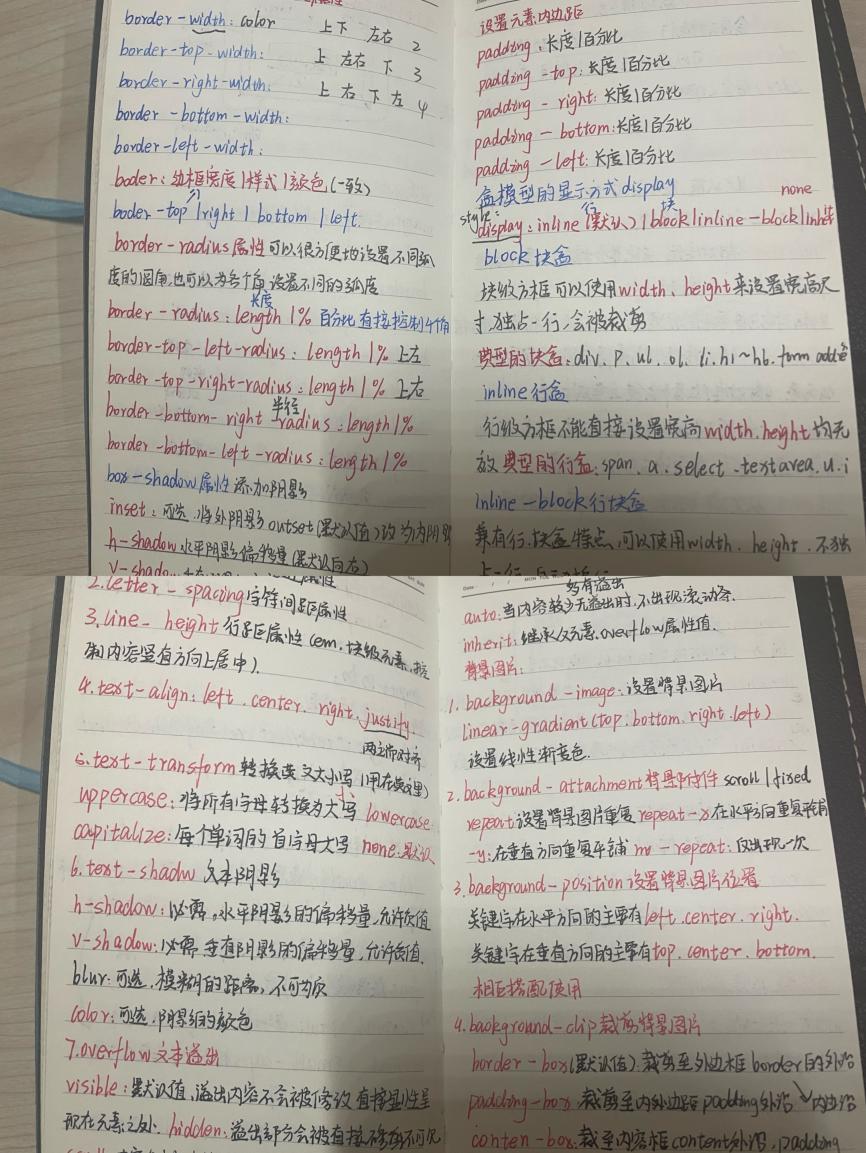 border-width: color 上下 左右 2
border-top-width: 上 左右 下 3
border-right-width: 上 右 下 左 4
border-bottom-width:
border-left-width:
boder: 边框宽度|样式|颜色(一致)
boder-top |right | bottom | left.
border-radius属性可以很方便地设置不同弧
度的圆角,也可以为各个角设置不同的弧度
长度
border-radius: length | % 百分比 直接控制4个角
border-top-left-radius: length | % 上左
border-top-right-radius: length | % 上右
半径
border-bottom-right-radius: length | %
border-bottom-left-radius: length | %
box-shadow属性 添加阴影
inset: 可选.将外阴影outset(默认值)改为内阴影
h-shadow 水平阴影偏移量(默认向右)
v-shadow
设置元素内边距
padding: 长度|百分比
padding-top: 长度|百分比
padding-right: 长度|百分比
padding-bottom: 长度|百分比
padding-left: 长度|百分比
盒模型的显示方式display none
style: 行 块
display: inline(默认) | block | inline-block | inherit
block 块盒
块级方框可以使用width、height来设置宽高尺
寸,独占一行,会被裁剪
典型的块盒: div. p. ul. ol. li. h1~h6. form
inline行盒
行级方框不能直接设置宽高width.height均无
效 典型的行盒: span. a. select. textarea. u. i
inline-block行块盒
兼有行.块盒特点.可以使用width、height.不独
占一行
2.letter-spacing字符间距属性
3.line-height行距属性(em.块级元素.控
制内容竖直方向上居中).
4.text-align: left. center. right. justify
两端对齐
5.text-transform转换英文大小写(用在英文里)
uppercase: 将所有字母转换为大写 lowercase
capitalize: 每个单词的首字母大写 none:默认
6.text-shadw 文本阴影
h-shadow: 必需。水平阴影的偏移量,允许负值
v-shadow: 必需.垂直阴影的偏移量,允许负值.
blur: 可选.模糊的距离,不可为负
color: 可选.阴影的颜色
7.overflow 文本溢出
visible: 默认值,溢出内容不会被修改 直接显性呈
现在元素之外. hidden: 溢出部分会被直接 不可见
多有溢出
auto: 当内容较少无溢出时,不出现滚动条.
inherit: 继承父元素.overflow属性值.
背景图片:
1. background-image: 设置背景图片
linear-gradient(top.bottom.right.left)
设置线性渐变色.
2. background-attachment 背景附件 scroll | fixed
repeat设置背景图片重复 repeat-x在水平方向重复平铺
-y: 在垂直方向重复平铺 no-repeat: 仅出现一次
3. background-position设置背景图片位置
关键字在水平方向的主要有left.center.right.
关键字在垂直方向的主要有top.center.bottom.
相互搭配使用
4. background-clip裁剪背景图片
border-box(默认值).裁剪至外边框border的外沿
padding-box 裁剪至内外边距padding外沿 内边沿
conten-box: 裁至内容框content外沿, padding